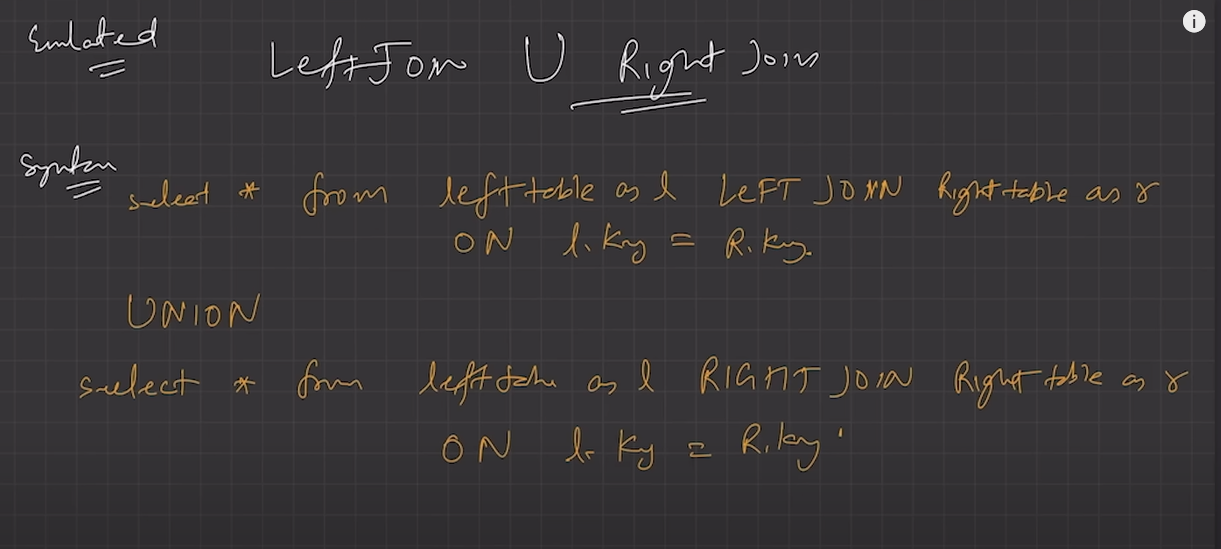 Emulated
Left Join U Right Join
Syntax
select * from lefttable as l LEFT JOIN Righttable as r
ON l.key = R.key.
UNION
select * from lefttable as l RIGHT JOIN Righttable as r
ON l.key = R.key